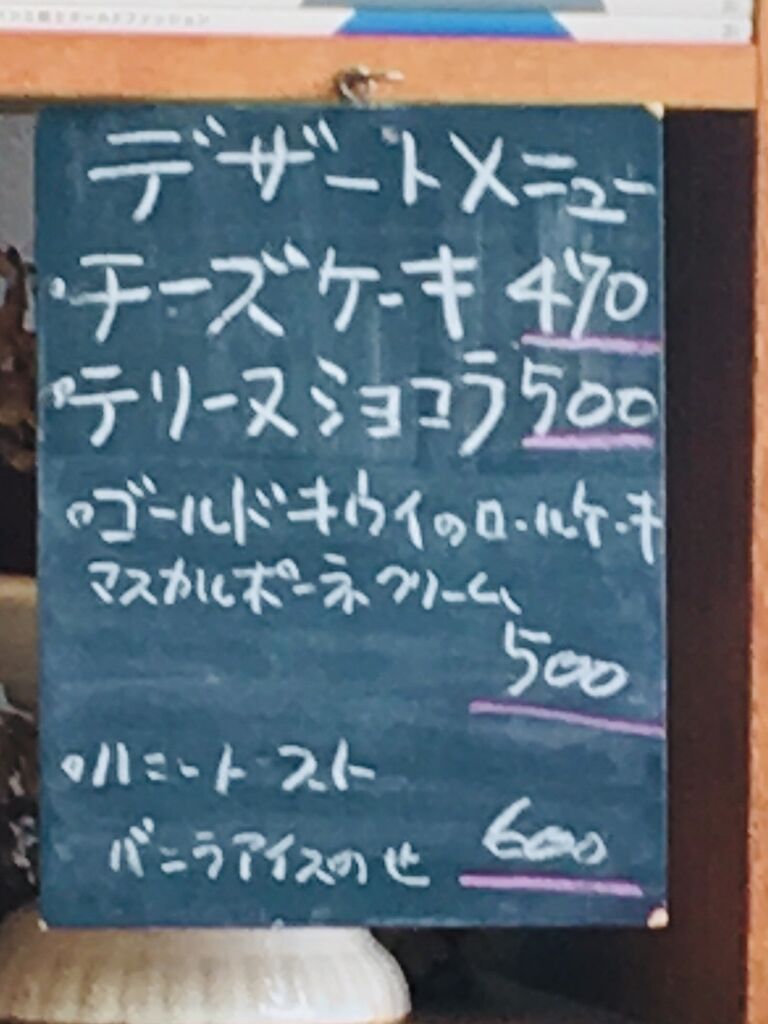 デザートメニュー
・チーズケーキ 470
・テリーヌショコラ 500
・ゴールドキウイのロールケーキ
マスカルポーネクリーム
500
・ハニートースト
バニラアイスのせ 600